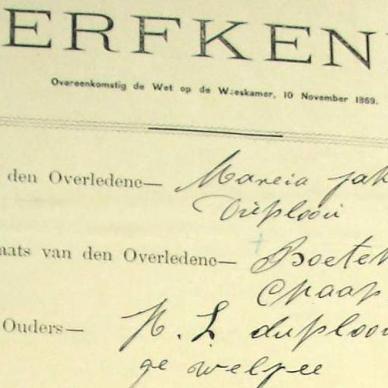 ERFKEN
Overeenkomstig de Wet op de Weeskamer, 10 November 1869.
den Overledene— Mareia jak
Duplooi
aats van den Overledene— Boete
Craap
Ouders— H. L duplooi
ge welpee